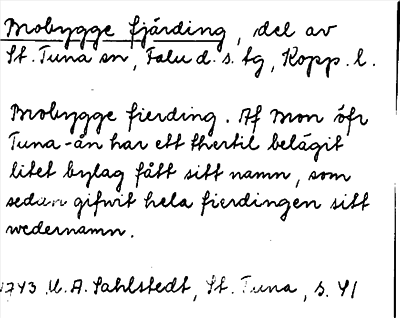 Mobygge fjärding, del av
St. Tuna sn, Falu d. s. tg, Kopp. l.
Mobygge fierding. Af Mon öfr
Tuna-ån har ett thertil belägit
litet bylag fått sitt namn, som
sedan gifwit hela fierdingen sitt
wedernamn.
1743 U. A. Sahlstedt, St. Tuna, s. 41